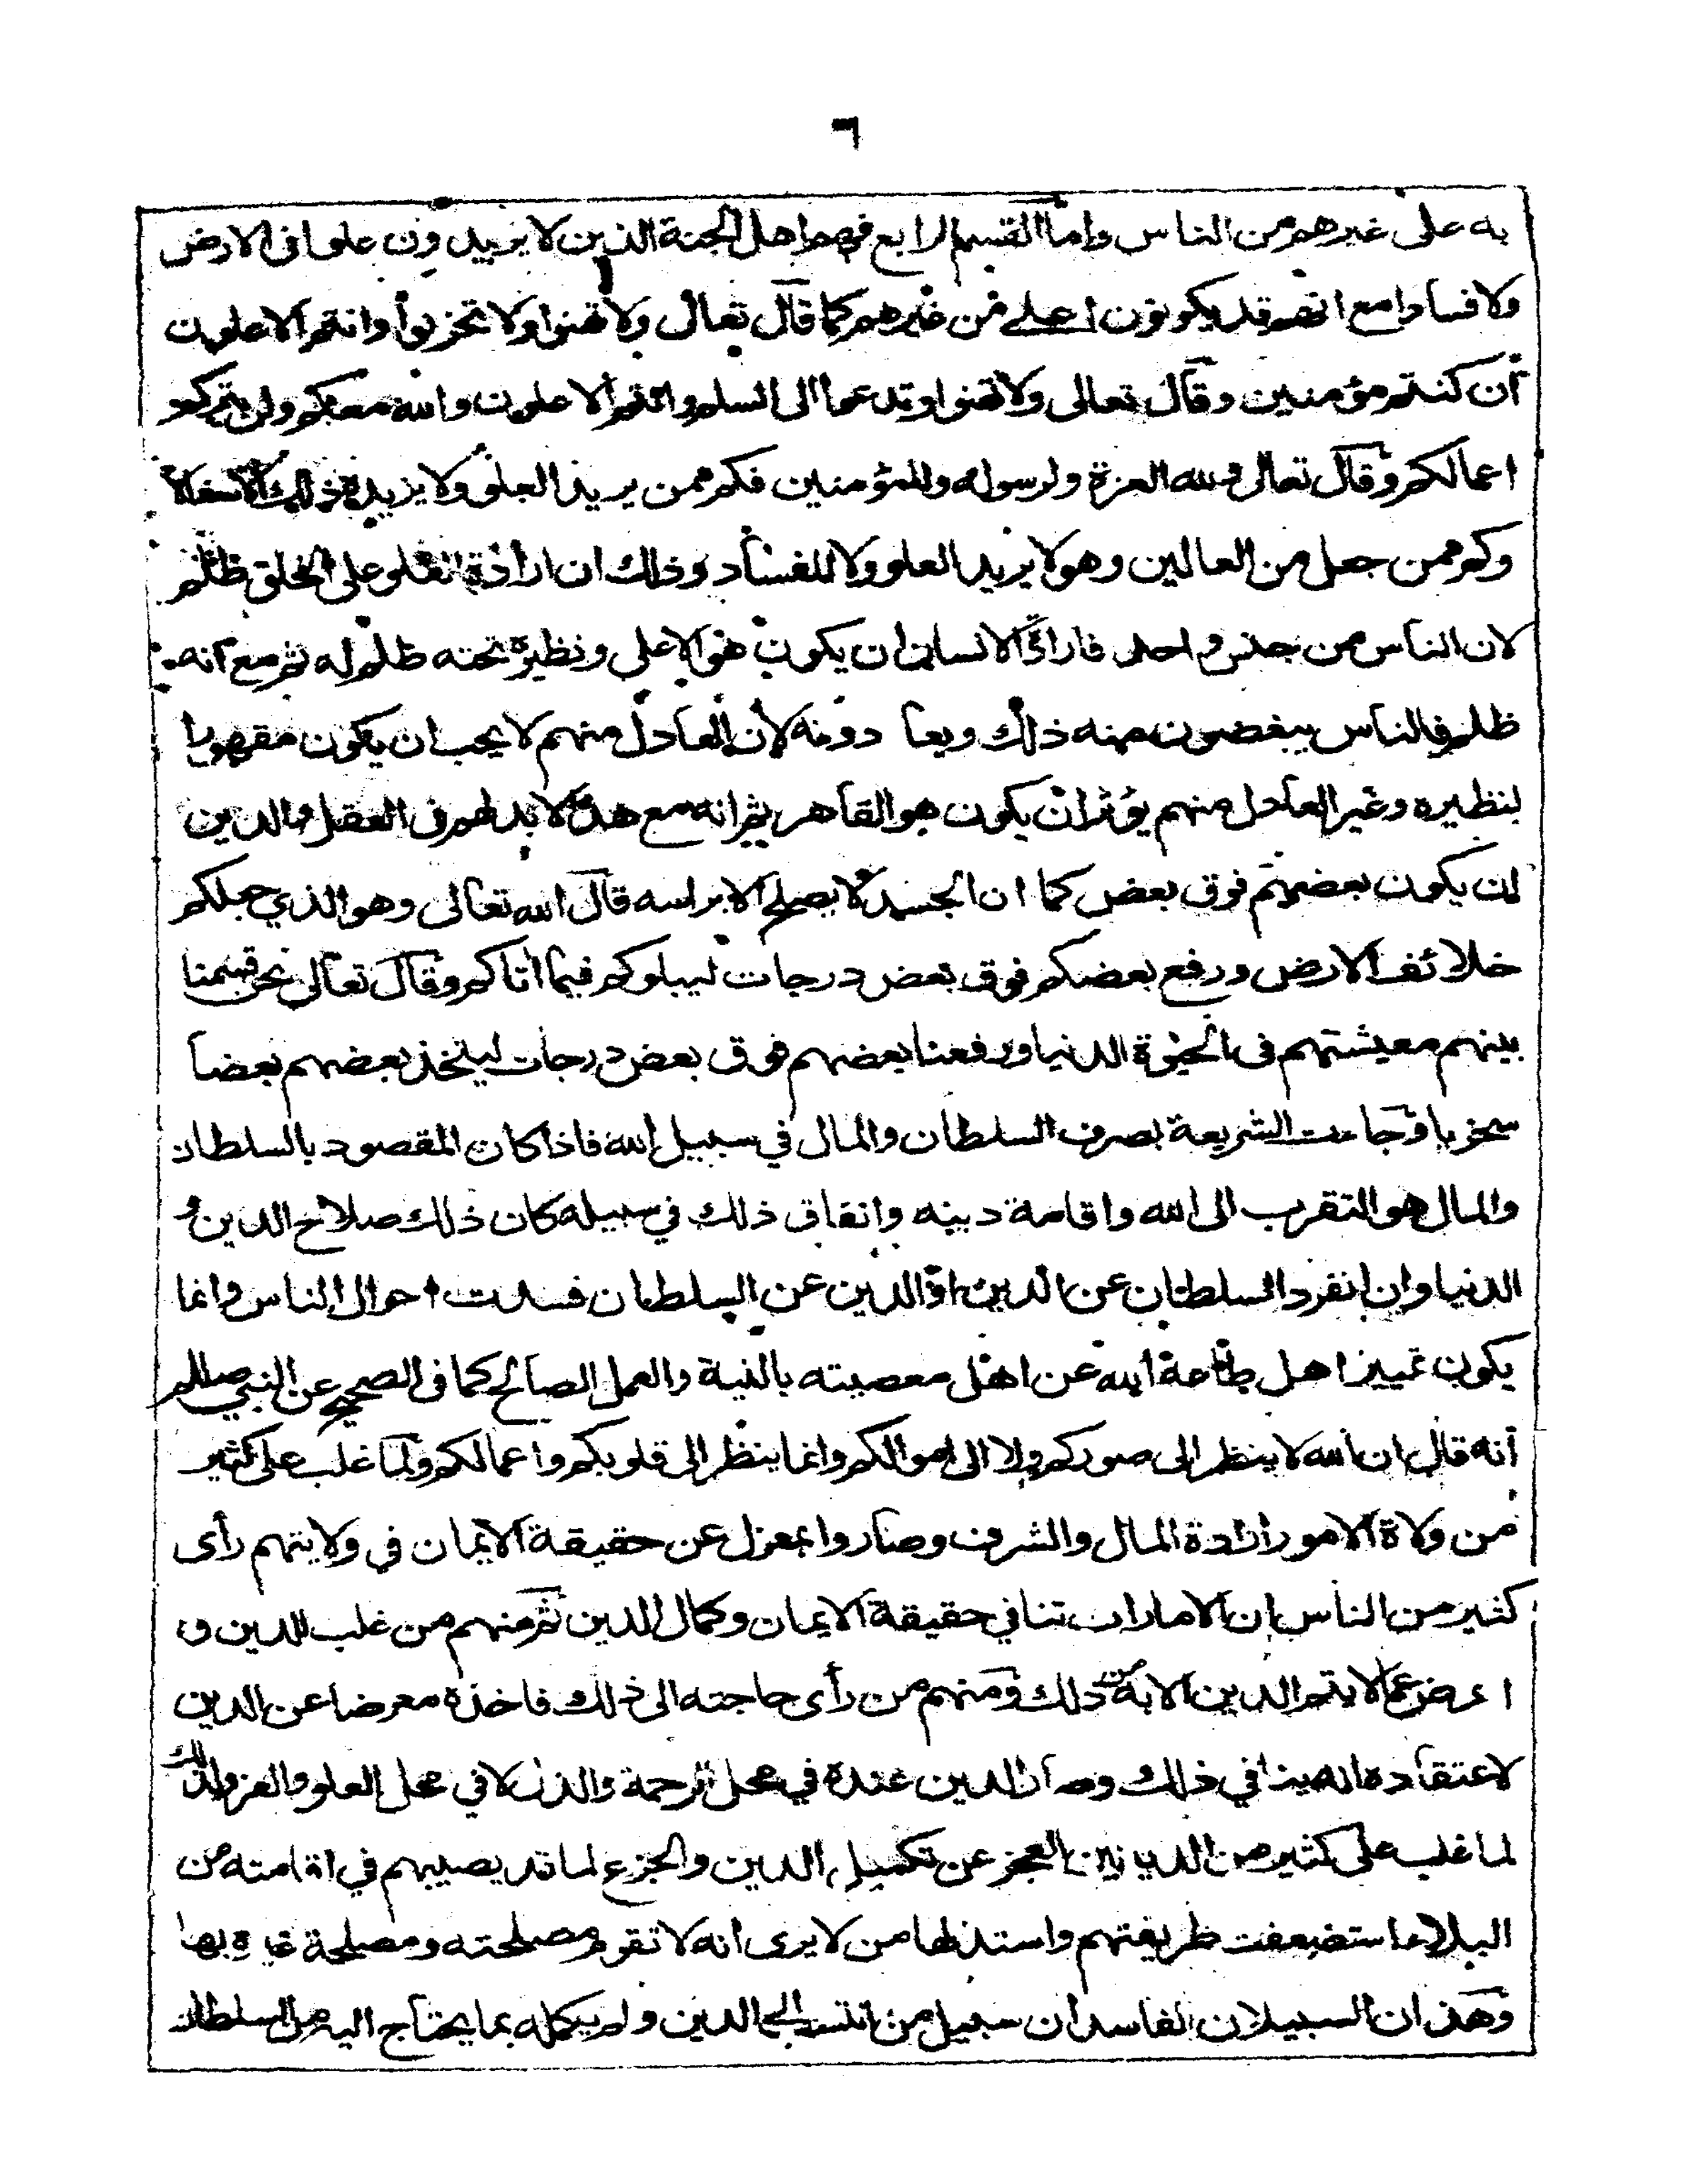 ٦
به على غيرهم من الناس واما القسم الرابع فهم اهل الجنة الذين لا يريدون علوا فى الارض
ولا فسادا مع انهم قد يكونون اعلى من غيرهم كما قال تعالى ولا تهنوا ولا تحزنوا وانتم الاعلون
ان كنتم مؤمنين وقال تعالى ولا تهنوا وتدعوا الى السلم وانتم الاعلون والله معكم ولن يتركم
اعمالكم وقال تعالى ولله العزة ولرسوله وللمؤمنين فكم ممن يريد العلو ولا يزيده ذلك الا سفالا
وكم ممن جعل من العالين وهو لا يريد العلو ولا للفساد وذلك ان ارادة العلو على الخلق ظلم
لان الناس من جنس واحد فارادة الانسان ان يكون هو الاعلى ونظيره تحته ظلم له ثم مع انه
ظلم فالناس يبغضون منه ذلك ويعادونه لان العادل منهم لا يحب ان يكون مقهورا
لنظيره وغير العادل منهم يؤثر ان يكون هو القاهر ثم انه مع هذا لا بد لهم فى العقل والدين
ان يكون بعضهم فوق بعض كما ان الجسد لا يصلح الا براسه قال الله تعالى وهو الذي جعلكم
خلائف الارض ورفع بعضكم فوق بعض درجات ليبلوكم فيما اتاكم وقال تعالى نحن قسمنا
بينهم معيشتهم فى الحيوة الدنيا ورفعنا بعضهم فوق بعض درجات ليتخذ بعضهم بعضا
سخريا وجاءت الشريعة بصرف السلطان والمال في سبيل الله فاذا كان المقصود بالسلطان
والمال هو التقرب الى الله واقامة دينه وانفاق ذلك في سبيله كان ذلك صلاح الدين و
الدنيا وان انفرد السلطان عن الدين او الدين عن السلطان فسدت احوال الناس وانما
يكون تمييز اهل طاعة الله عن اهل معصيته بالنية والعمل الصالح كما فى الصحيح عن النبي صللم
انه قال ان الله لا ينظر الى صوركم ولا الى اموالكم وانما ينظر الى قلوبكم واعمالكم ولما غلب على كثير
من ولاة الامور ارادة المال والشرف وصاروا بمعزل عن حقيقة الايمان في ولايتهم رأى
كثير من الناس ان الامارات تنافي حقيقة الايمان وكمال الدين ثم منهم من غلب الدين و
اعرض عما لا يتم الدين الا به من ذلك ومنهم من رأى حاجته الى ذلك فاخذه معرضا عن الدين
لاعتقاده انه ينافي ذلك وصار الدين عنده في محل الرحمة والذل لا في محل العلو والعز وكذلك
لما غلب على كثير من الديانين العجز عن تكميل الدين والجزع لما قد يصيبهم في اقامته من
البلاء استضعفت طريقتهم واستذلها من لا يرى انه لا تقوم مصلحته ومصلحة غيره بها
وهذان السبيلان الفاسدان سبيل من انتسب الى الدين ولم يكمله بما يحتاج اليه من السلطان